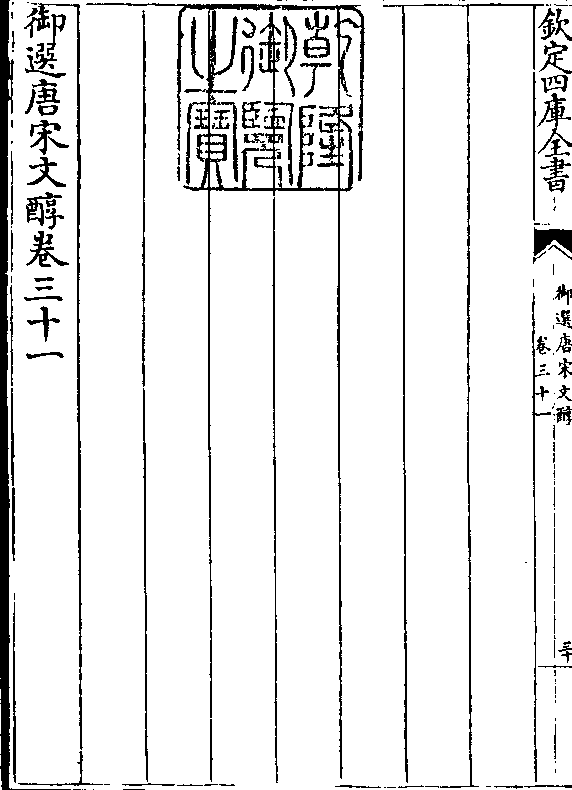 欽定四庫全書
御選唐宋文醇
卷三十一
三十
乾隆御覽之寶
御選唐宋文醇卷三十一